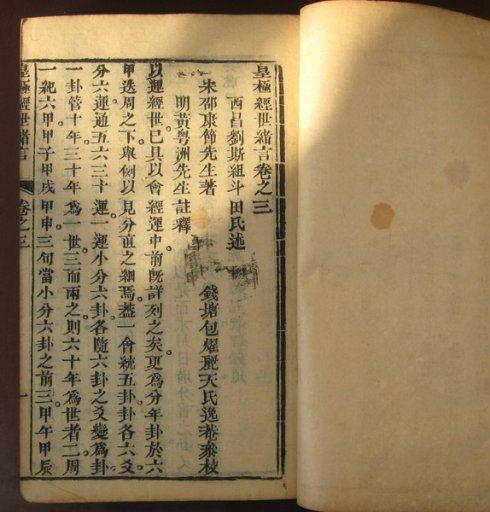 皇極經世緒言卷之三
西昌劉斯組斗田氏述
宋邵康節先生著
明黃粵洲先生註釋
錢塘包燿麗天氏逸菴參校
以運經世巳具以會經運中前旣詳列之矣更爲分年卦於六
甲迭周之下舉例以見分直之綱焉蓋一會統五卦卦各六爻
分六運通五六三十運一運小分六卦各隨六卦之爻變爲卦
一卦管十年三十年爲一世三而兩之則六十年爲世者二周
一紀六甲甲子甲戌甲申三旬當小分六卦之前三甲午甲辰
皇極經世緒言
卷之三
一